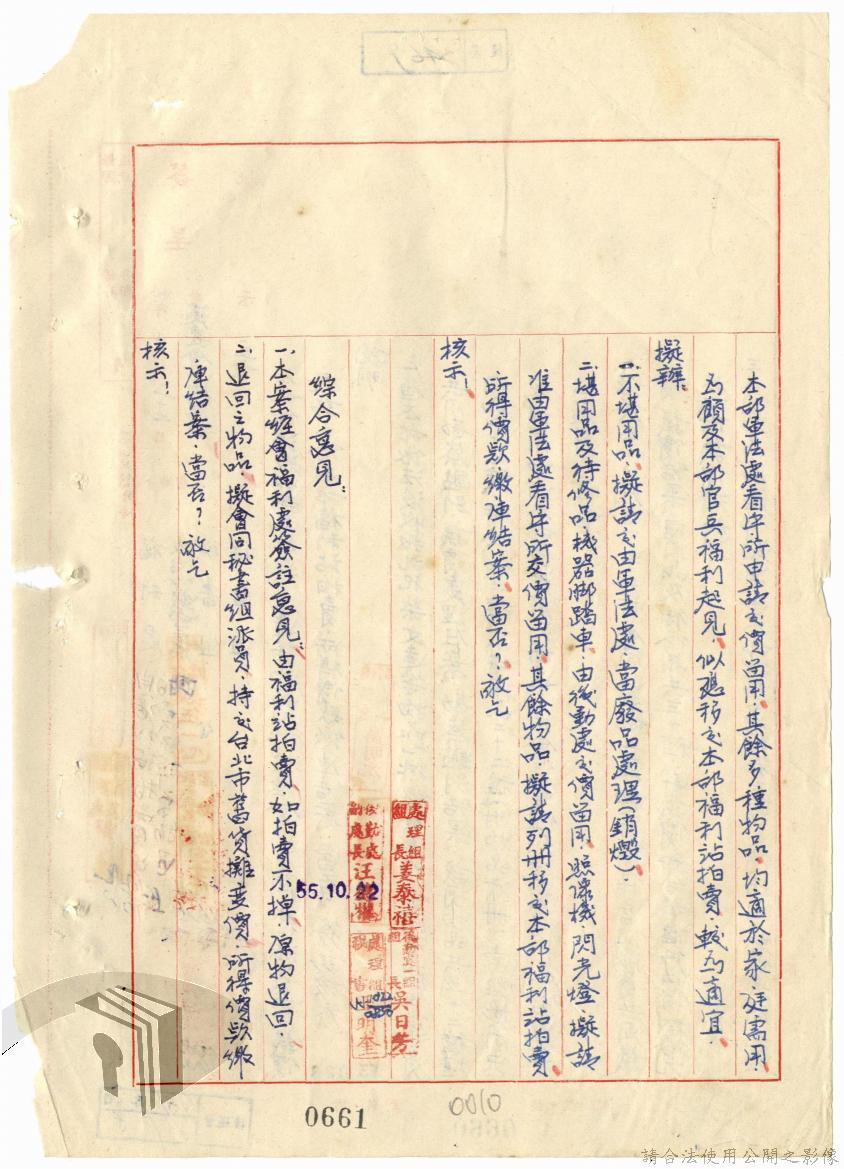 本部軍法處看守所申請交價留用,其餘多種物品,均適於家庭需用,
為顧及本部官兵福利起見,似應移交本部福利站拍賣,較為適宜,
擬辦:
一、不堪用品,擬請交由軍法處,當廢品處理(銷燬),
二、堪用品及待修品,機器脚踏車,由後勤處交價留用,照像機,閃光燈,擬請
准由軍法處看守所交價留用,其餘物品,擬請列冊移交本部福利站拍賣
所得價款,繳庫結案,當否?敬乞
核示!
處理組組長姜泰
後勤處一組組長吳日芳
後勤處副處長汪
處理組
明奎
55.10.22
綜合意見:
一、本案經會福利處簽註意見:由福利站拍賣,如拍賣不掉,原物退回,
二、退回之物品,擬會同秘書組派員,持交台北市舊貨攤變價,所得價款繳
庫結案,當否?敬乞
核示!
0661
0010
請合法使用公開之影像